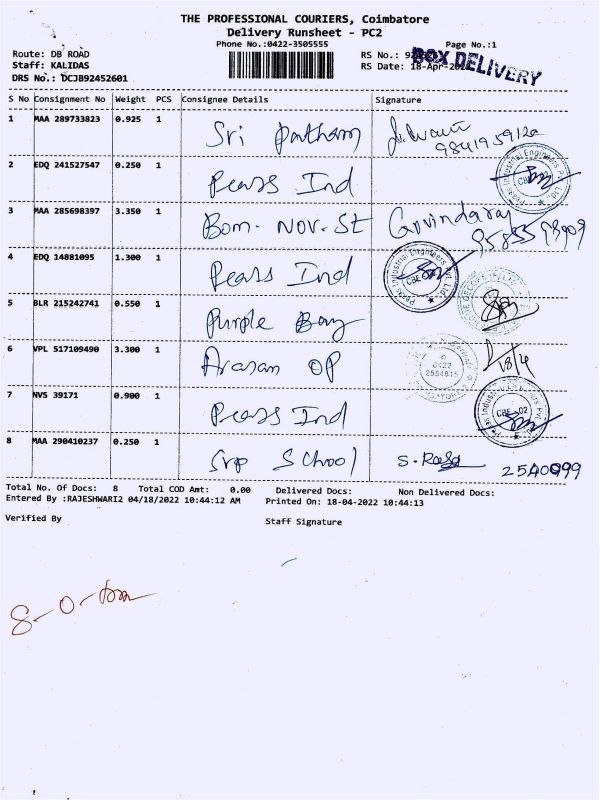 THE PROFESSIONAL COURIERS, Coimbatore
Delivery Runsheet - PC2
Phone No.:0422-3505555
Page No.:1
Route: DB ROAD
RS No.:
BOX DELIVERY
Staff: KALIDAS
RS Date: 18-Apr-
DRS No.: DCJB92452601
S No Consignment No Weight PCS Consignee Details Signature
1 MAA 289733823 0.925 1 Sri
2 EDQ 241527547 0.250 1 Pears Ind
3 MAA 285698397 3.350 1 Bom. Nov. St Govindaraj
4 EDQ 14881095 1.300 1 Pears Ind
5 BLR 215242741 0.550 1 Purple Bay
6 VPL 517109490 3.300 1 Arasan OP 18/4
0422
2554615
7 NVS 39171 0.900 1 Pears Ind
8 MAA 290410237 0.250 1 Srp School S. 2540999
Total No. Of Docs: 8 Total COD Amt: 0.00 Delivered Docs: Non Delivered Docs:
Entered By :RAJESHWARI2 04/18/2022 10:44:12 AM Printed On: 18-04-2022 10:44:13
Verified By Staff Signature
8-0-